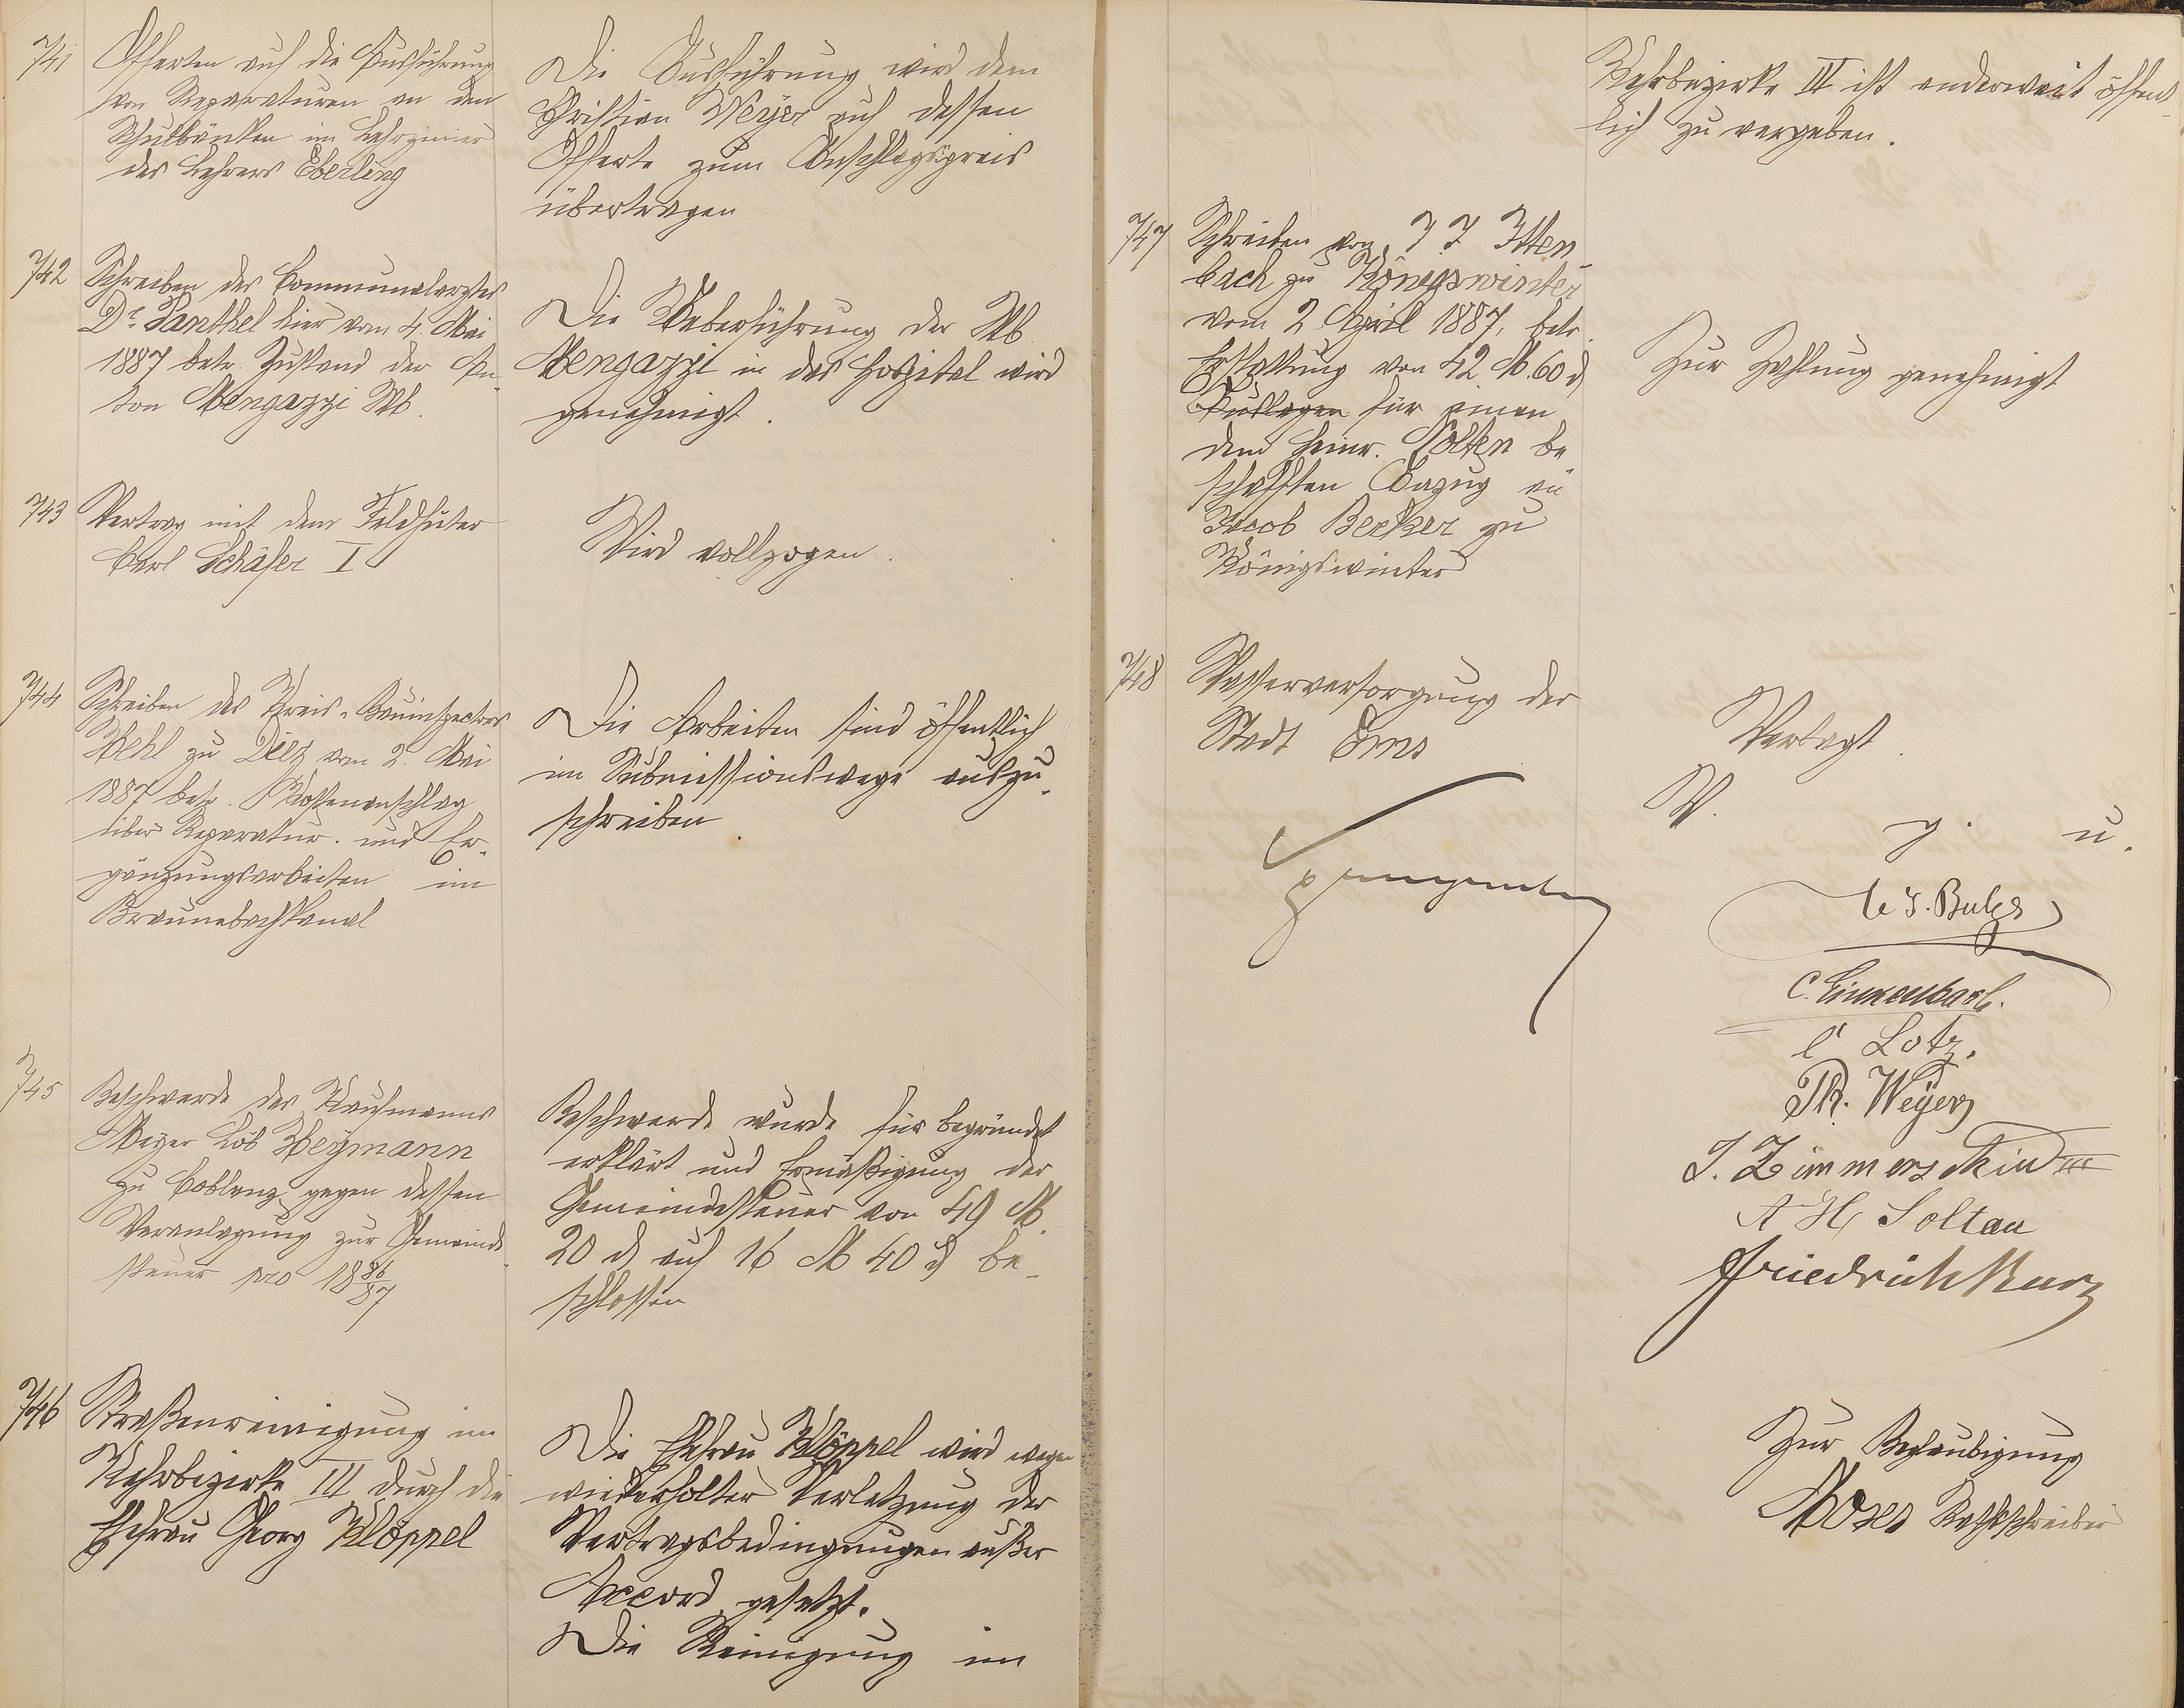 741
Offerten auf die Ausführung
von Reparaturen an den
Schulbänken im Lehrzimmer
des Lehrers Eberling
Die Ausführung wird dem
Christian Weyer auf dessen
Offerte zum Anschlagspreis
übertragen
742
Schreiben des Communalarztes
Dr. Panthel hier vom 4. Mai
1887 betr. Zustand der An-
ton Mengazzi Wb.
Die Ueberführung der Wb
Mengazzi in das Hospital wird
genehmigt.
743
Vertrag mit dem Feldhüter
Carl Schäfer I
Wird vollzogen.
744
Schreiben des Kreis-Bauinspectors
Hehl zu Diez vom 2. Mai
1887 betr. Kostenanschlag
über Reparatur- und Er-
gänzungsarbeiten im
Braunebachkanal
Die Arbeiten sind öffentlich
im Submissionswege auszu-
schreiben.
745
Beschwerde des Kaufmanns
Mayer Löb Heymann
zu Coblenz gegen dessen
Veranlagung zur Gemeinde-
steuer pro 1886/87
Beschwerde wurde für begründet
erklärt und Ermäßigung der
Gemeindesteuer von 49 M.
20 d auf 16 M 40 d be-
schlossen
746
Straßenreinigung im
Kehrbezirke III durch die
Ehefrau Georg Klöppel
Die Ehefrau Klöppel wird wegen
wiederholter Verletzung der
Vertragsbedingungen außer
Accord gesetzt.
Die Reinigung im
Kehrbezirke III ist anderweit öffent-
lich zu vergeben.
747
Schreiben von J J Itten-
bach zu Königswinter
vom 2 April 1887, betr.
Erstattung von 42 M. 60 d
Auslagen für einen
dem Heinr. Nolten be
schafften Anzug an
Jacob Becker zu
Königswinter
Zur Zahlung genehmigt
748
Wasserversorgung der
Stadt Ems
Vertagt.
V. g. u.
C. Linkenbach.
C Lotz.
Th. Weyer
J. Zimmerschied III
A H Soltau
Friedrich Kurz
Zur Beglaubigung
Moses Rathsschreiber